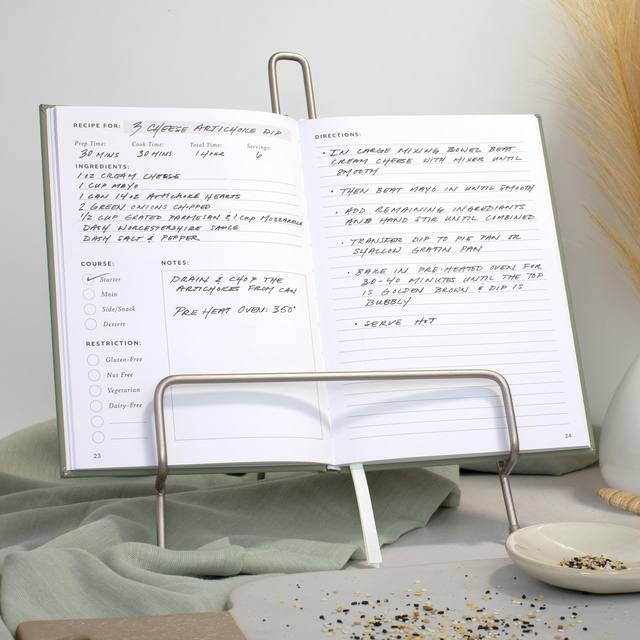 RECIPE FOR: 3 CHEESE ARTICHOKE DIP
Prep Time: Cook Time: Total Time: Servings:
30 MINS 30 MINS 1 HOUR 6
INGREDIENTS:
1 OZ CREAM CHEESE
1 CUP MAYO
1 CAN 14OZ ARTICHOKE HEARTS
2 GREEN ONIONS CHIPPED
1/2 CUP GRATED PARMESAN & 1 CUP MOZZARELLA
DASH WORCESTERSHIRE SAUCE
DASH SALT & PEPPER
COURSE:
Starter
Main
Side/Snack
Dessert
RESTRICTION:
Gluten-Free
Nut Free
Vegetarian
Dairy-Free
NOTES:
DRAIN & CHOP THE
ARTICHOKES FROM CAN
PRE HEAT OVEN: 350°
23
DIRECTIONS:
• IN LARGE MIXING BOWEL BEAT
CREAM CHEESE WITH MIXER UNTIL
SMOOTH
• THEN BEAT MAYO IN UNTIL SMOOTH
• ADD REMAINING INGREDIANTS
AND HAND STIR UNTIL COMBINED
• TRANSFER DIP TO PIE PAN OR
SHALLOW GRATIN PAN
• BAKE IN PRE-HEATED OVEN FOR
30-40 MINUTES UNTIL THE TOP
IS GOLDEN BROWN & DIP IS
BUBBLY
• SERVE HOT
24